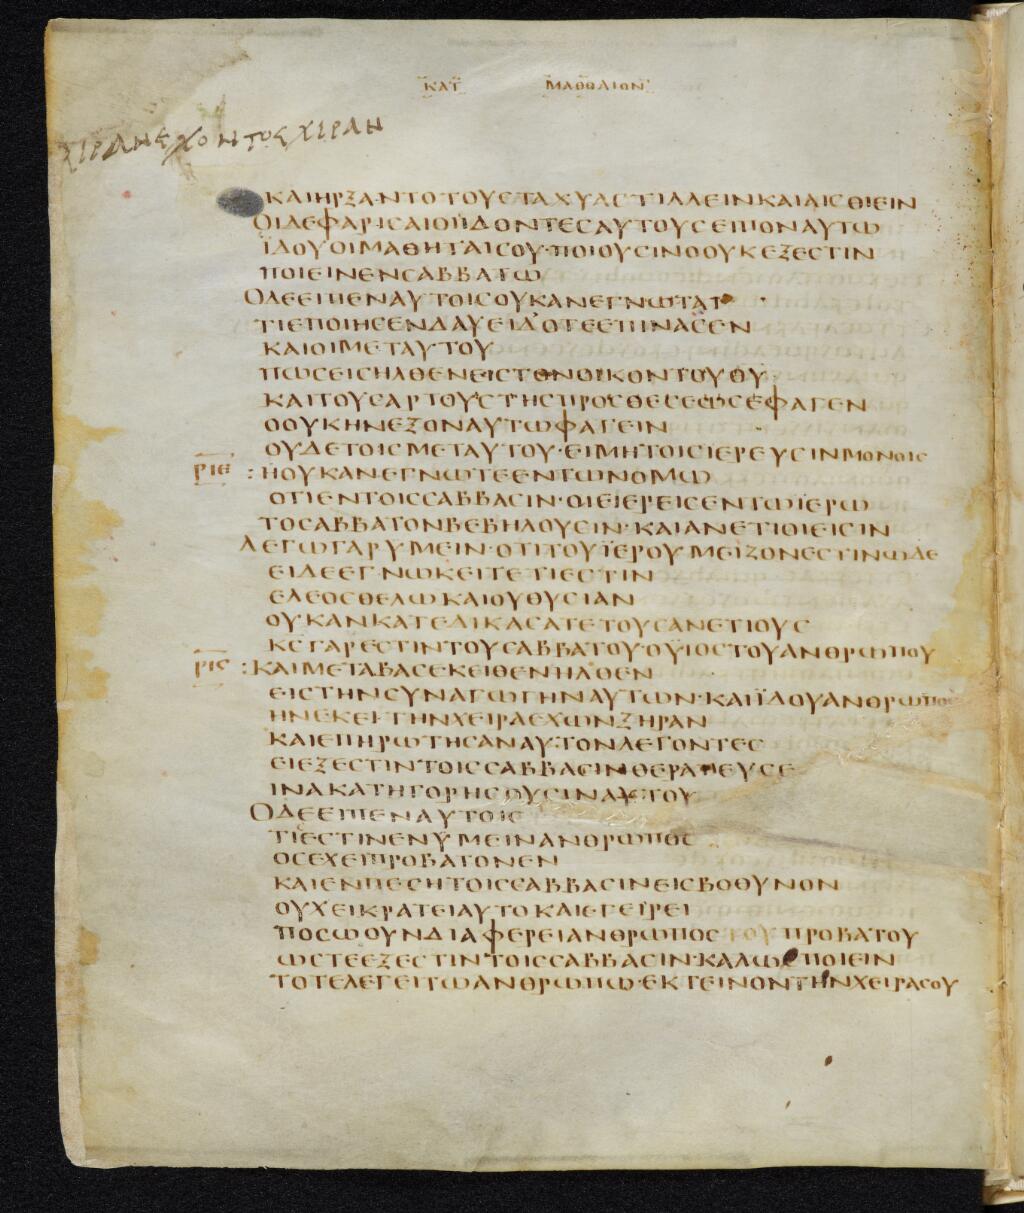 ΚΑΤ ΜΑΘΘΑΙΟΝ
ΧΙΡΑΝ ΕΧΟΝΤΟΣ ΧΙΡΑΝ
ΚΑΙΗΡΞΑΝΤΟΤΟΥСΤΑΧΥΑСΤΙΛΛΕΙΝΚΑΙΑΙСΘΙΕΙΝ
ΟΙΔΕΦΑΡΙСΑΙΟΙΪΔΟΝΤΕСΑΥΤΟΥСΕΙΠΟΝΑΥΤΩ
ΪΔΟΥΟΙΜΑΘΗΤΑΙСΟΥ·ΠΟΙΟΥСΙΝΟΟΥΚΕΞΕСΤΙΝ
ΠΟΙΕΙΝΕΝСΑΒΒΑΤΩ
ΟΔΕΕΙΠΕΝΑΥΤΟΙСΟΥΚΑΝΕΓΝΩΤΑΙ
ΤΙΕΠΟΙΗСΕΝΔΑΥΕΙΔΟΤΕΕΠΙΝΑСΕΝ
ΚΑΙΟΙΜΕΤΑΥΤΟΥ
ΠΩСΕΙСΗΛΘΕΝΕΙСΤΟΝΟΙΚΟΝΤΟΥΘΥ
ΚΑΙΤΟΥСΑΡΤΟΥСΤΗСΠΡΟСΘΕСΕΩСΕΦΑΓΕΝ
ΟΟΥΚΗΝΕΞΟΝΑΥΤΩΦΑΓΕΙΝ
ΟΥΔΕΤΟΙСΜΕΤΑΥΤΟΥ·ΕΙΜΗΤΟΙСΙΕΡΕΥСΙΝΜΟΝΟΙС
ΡΙΕ :ΗΟΥΚΑΝΕΓΝΩΤΕΕΝΤΩΝΟΜΩ
ΟΤΙΕΝΤΟΙССΑΒΒΑСΙΝ·ΟΙΕΙΕΡΕΙСΕΝΤΩΪΕΡΩ
ΤΟСΑΒΒΑΤΟΝΒΕΒΗΛΟΥСΙΝ·ΚΑΙΑΝΕΤΙΟΙΕΙСΙΝ
ΛΕΓΩΓΑΡΥΜΕΙΝ·ΟΤΙΤΟΥΪΕΡΟΥΜΕΙΖΟΝΕСΤΙΝΩΔΕ
ΕΙΔΕΕΓΝΩΚΕΙΤΕΤΙΕСΤΙΝ
ΕΛΕΟСΘΕΛΩΚΑΙΟΥΘΥСΙΑΝ
ΟΥΚΑΝΚΑΤΕΔΙΚΑСΑΤΕΤΟΥСΑΝΕΤΙΟΥС
ΚСΓΑΡΕСΤΙΝΤΟΥСΑΒΒΑΤΟΥ·ΟΥΪΟСΤΟΥΑΝΘΡΩΠΟΥ
ΡΙϚ :ΚΑΙΜΕΤΑΒΑСΕΚΕΙΘΕΝΗΛΘΕΝ
ΕΙСΤΗΝСΥΝΑΓΩΓΗΝΑΥΤΩΝ·ΚΑΙΪΔΟΥΑΝΘΡΩΠΟС
ΗΝΕΚΕΙΤΗΝΧΕΙΡΑΕΧΩΝΞΗΡΑΝ
ΚΑΙΕΠΗΡΩΤΗСΑΝΑΥΤΟΝΛΕΓΟΝΤΕС
ΕΙΕΞΕСΤΙΝΤΟΙССΑΒΒΑСΙΝΘΕΡΑΠΕΥСΕ
ΙΝΑΚΑΤΗΓΟΡΗСΟΥСΙΝΑΥΤΟΥ
ΟΔΕΕΙΠΕΝΑΥΤΟΙС
ΤΙΕСΤΙΝΕΝΥΜΕΙΝΑΝΘΡΩΠΟС
ΟСΕΧΕΙΠΡΟΒΑΤΟΝΕΝ
ΚΑΙΕΝΠΕСΗΤΟΙССΑΒΒΑСΙΝΕΙСΒΟΘΥΝΟΝ
ΟΥΧΕΙΚΡΑΤΕΙΑΥΤΟΚΑΙΕΓΕΙΡΕΙ
ΠΟСΩΟΥΝΔΙΑΦΕΡΕΙΑΝΘΡΩΠΟСΤΟΥΠΡΟΒΑΤΟΥ
ΩСΤΕΕΞΕСΤΙΝΤΟΙССΑΒΒΑСΙΝ·ΚΑΛΩСΠΟΙΕΙΝ
ΤΟΤΕΛΕΓΕΙΤΩΑΝΘΡΩΠΩ·ΕΚΤΕΙΝΟΝΤΗΝΧΕΙΡΑСΟΥ